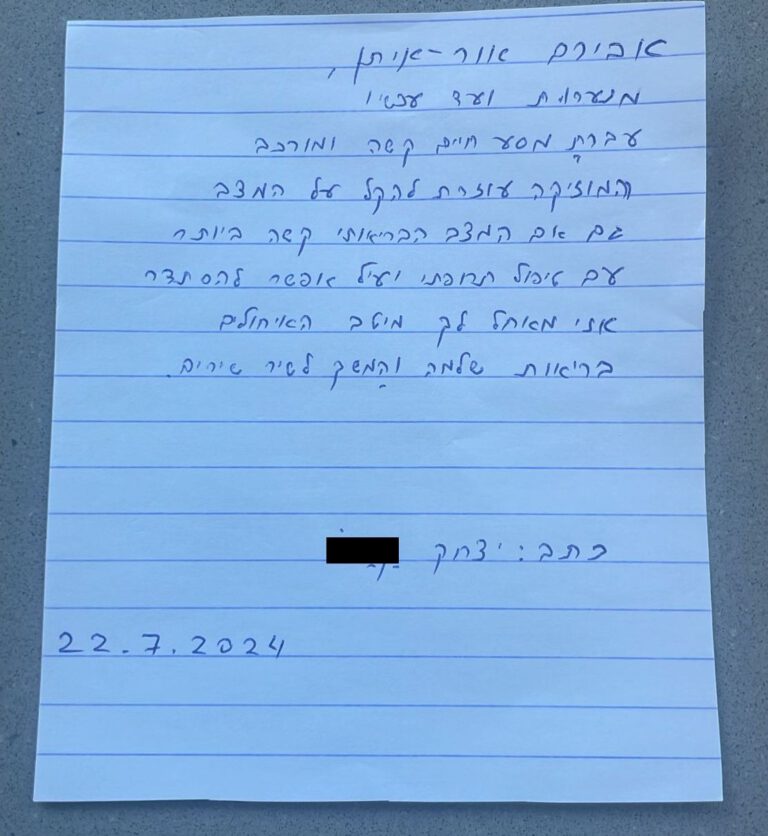 אבירם אור-איתן,
מנערות ועד עכשיו
עברת מסע חיים קשה ומורכב
והמוזיקה עוזרת להקל על המצב
גם אם המצב הבריאותי קשה ביותר
עם טיפול תרופתי ועיל אפשר להסתדר
אני מאחל לך מיטב האיחולים
בריאות שלמה והמשך לשיר שירים.
כתב: יצחק
22.7.2024